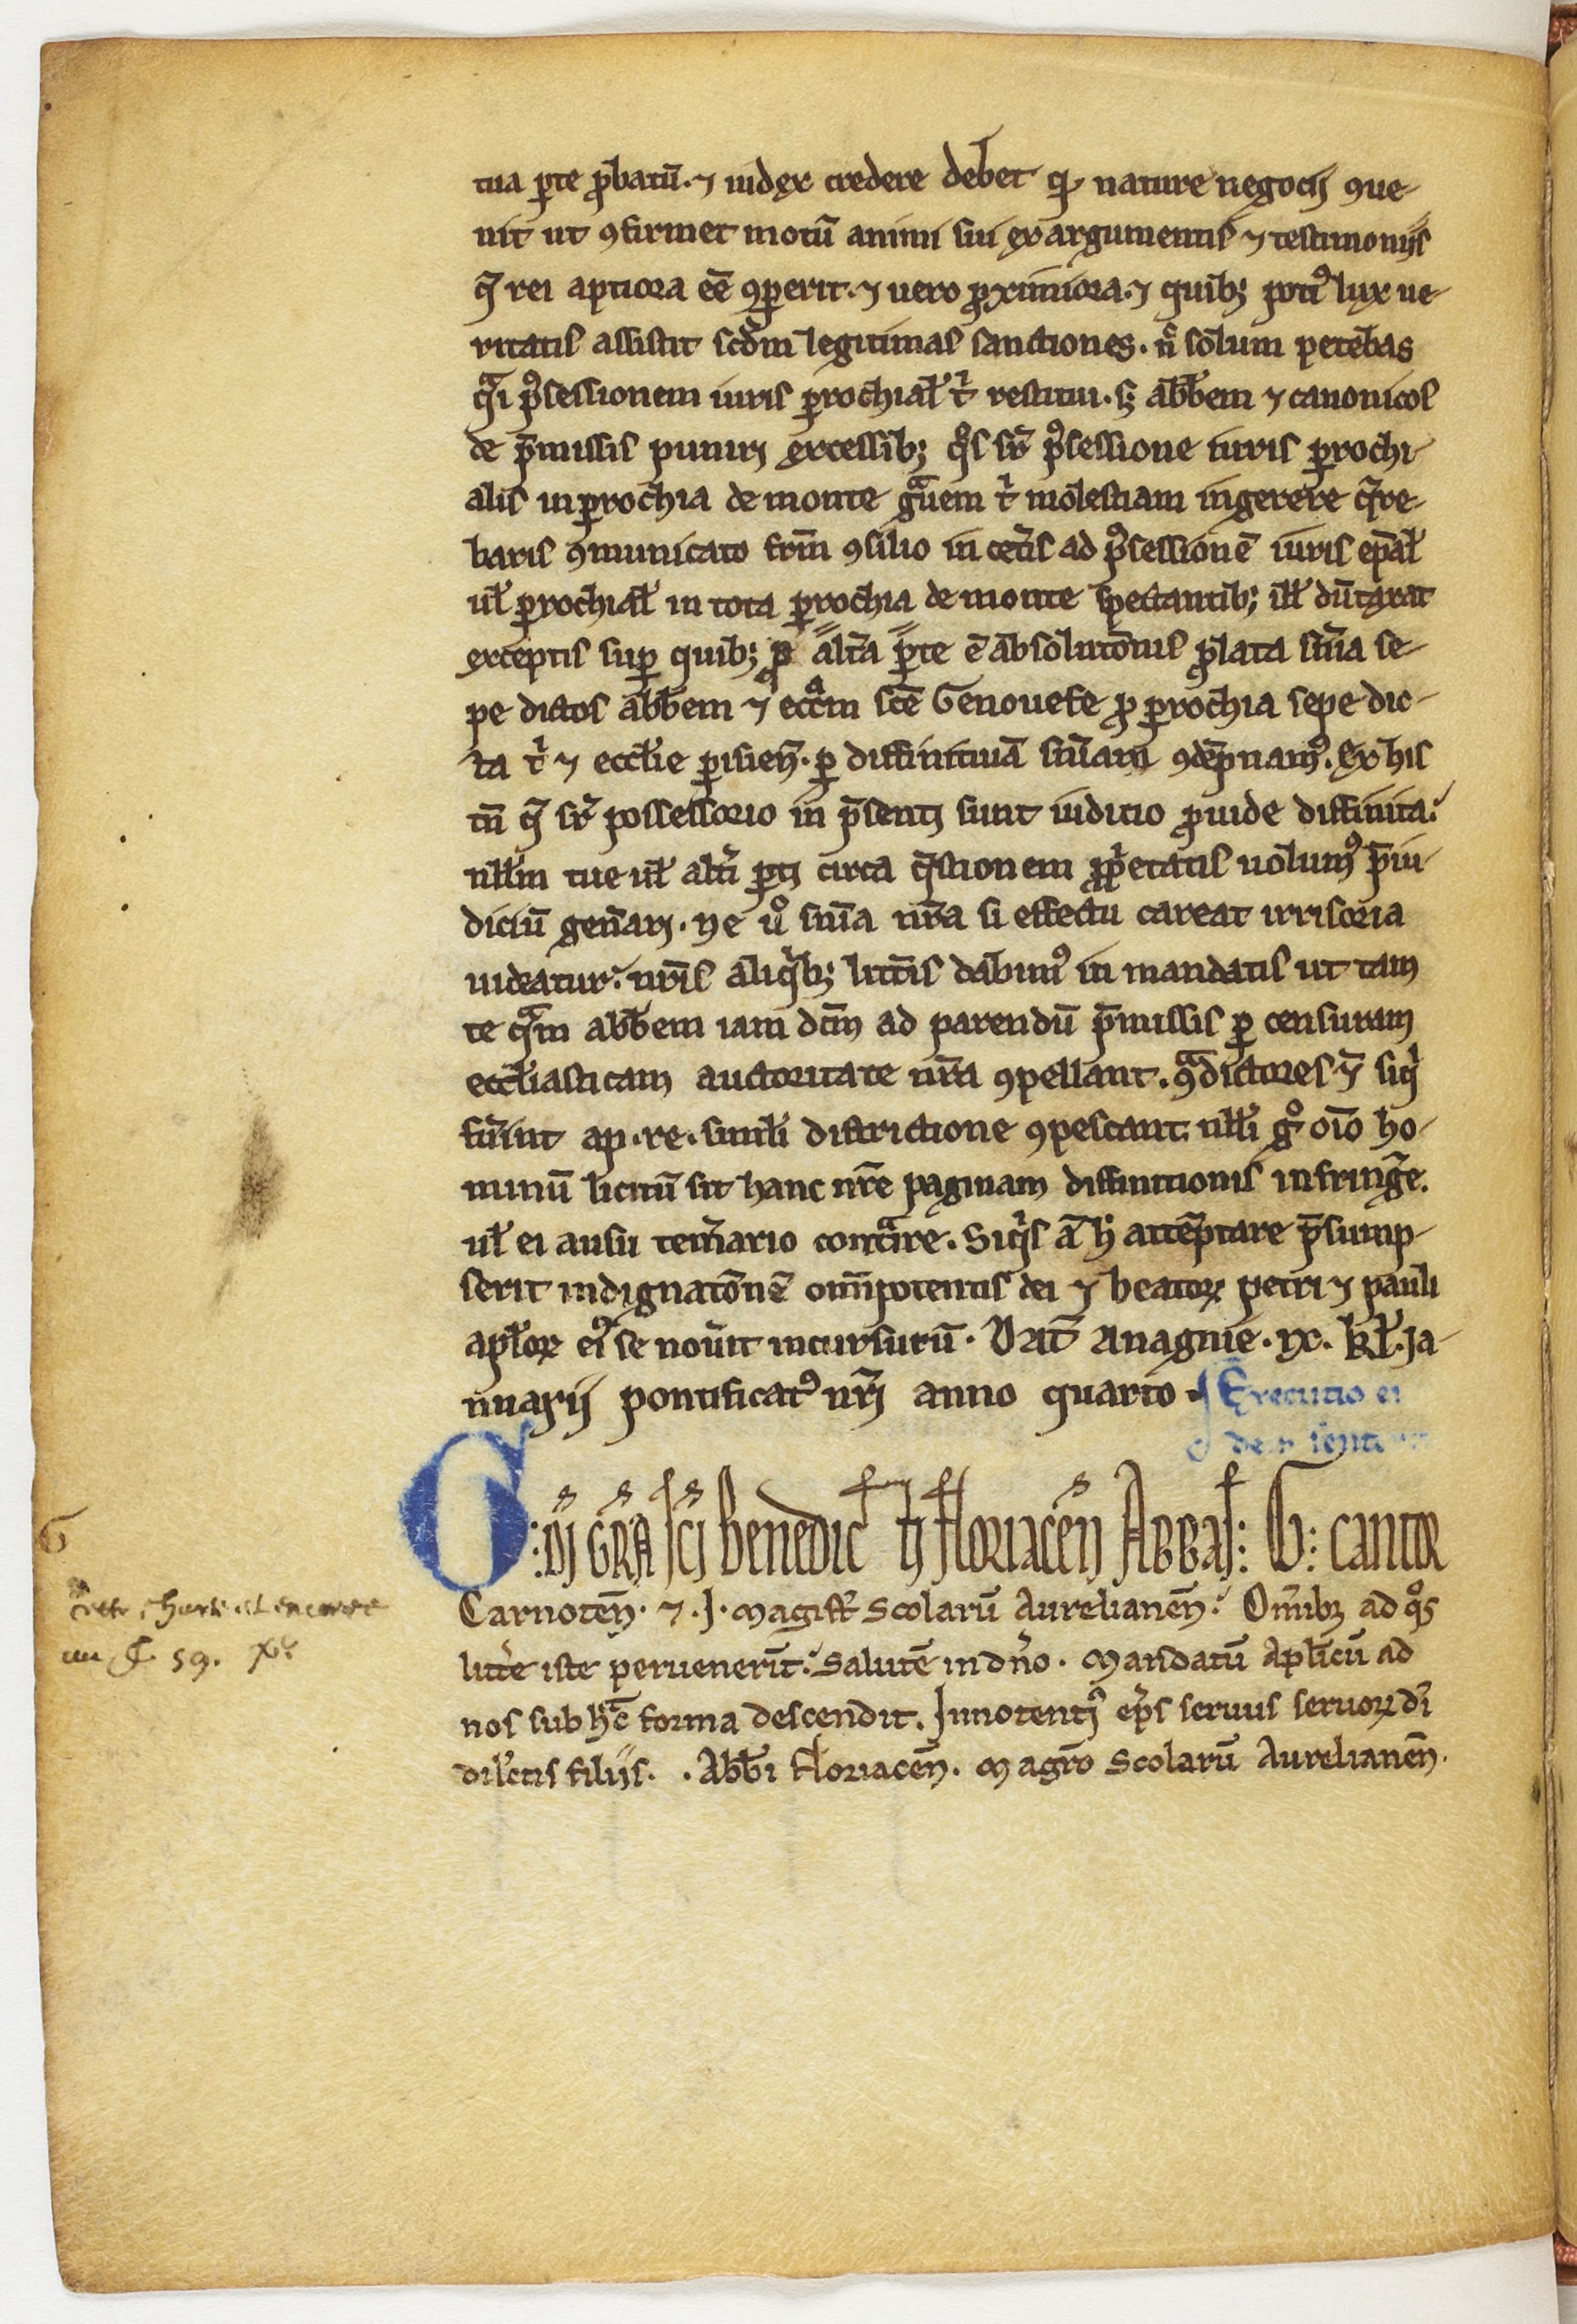 tua ꝑte ꝓbatū. ⁊ iudex credere debet qď nature negocij ꝯue-
nit ut ꝯfirmet motū animi sui ex argumentis ⁊ testimoniis
q̄ rei aptiora eē ꝯꝑerit. ⁊ uero ꝓximiora. ⁊ quibꝫ potiꝰ lux ue-
ritatis assistit scďm legitimas sanctiones. ñ solum petebas
qᵃi pꝰsessionem iuris ꝑrochial̄ tⁱ restitui. sꝫ abb̄em ⁊ canonicos
de p̄missis puniri excessibꝫ qᵒs sr̄ pꝰsessione iuris ꝑrochi-
alis in ꝑrochia de monte gᵃuem tⁱ molestiam ingerere q̄re-
baris ꝯmunicato frm̄ ꝯsilio in cet̄is ad pꝰsessionē iuris ep̄al̄
ul̄ ꝑrochial̄ in tota ꝑrochia de monte spectantibꝫ ill̄ dūtaxat
exceptis suꝑ quibꝫ ꝓ alt̄a ꝑte ē absolutōnis ꝓlata sn̄ia se-
pe dictos abb̄em ⁊ eccᵃm sc̄e Genouefe ꝓ ꝑrochia sepe dic-
ta tⁱ ⁊ eccl̄ie ꝑisien̄. ꝑ diffinitiuā sn̄iam ꝯdēpnamꝰ. Ex his
tn̄ q̄ sr̄ possessorio in p̄senti sunt iuditio ꝓuide diffinita.
nll̄m tue ul̄ alt̄i ꝑti circa q̄stionem ꝓpⁱetatis uolumꝰ p̄iu-
diciū gen̄ari. ne uᵒ sn̄ia nr̄a si effectu careat irrisoria
uideatur. nr̄is aliqⁱbꝫ litt̄is dabimꝰ in mandatis ut tam
te qᵃm abb̄em iam dc̄m ad parendū p̄missis ꝑ censuram
eccl̄iasticam auctoritate nr̄a ꝯpellant. ꝯᵃdictores ⁊̄ siqⁱ
fūint ap. re. simili districtione ꝯpescant. nll̄i gᵒ oīo ho-
minū licitū sit hanc nr̄e paginam diffinitionis infrinḡe.
ul̄ ei ausu tem̄ario contᵃire. Siqⁱs ā h̄ attēptare p̄sump-
serit indignatōnē omīpotentis dei ⁊ beatoꝝ petri ⁊ pauli
apl̄oꝝ eiꝰ se nou̅it incursurū. Dat̄ Anagnie. ix. kl̄. Ja-
nuarii pontificatꝰ nr̄i anno quarto. Executio ei
dem sente
G: Dī GRA sc̄i Benedic̄ti Floriacen̄ Abbas: G: cantor
Carnoten̄. ⁊ .J. magist̄ scolarū Aurelianen̄. Om̄ibꝫ ad qᵒs
litt̄e iste peruenerīt. Salutē in dn̄o. Mandatū Apl̄icū ad
nos sub hᵃc forma descendit. Innocentiꝰ ep̄s seruus seruoꝝ dī
dil̄ctis filiis. . Abb̄i Floriacen̄. Magr̄o scolarū Aurelianen̄.
Cette charte est encore
au f. 59. Rº